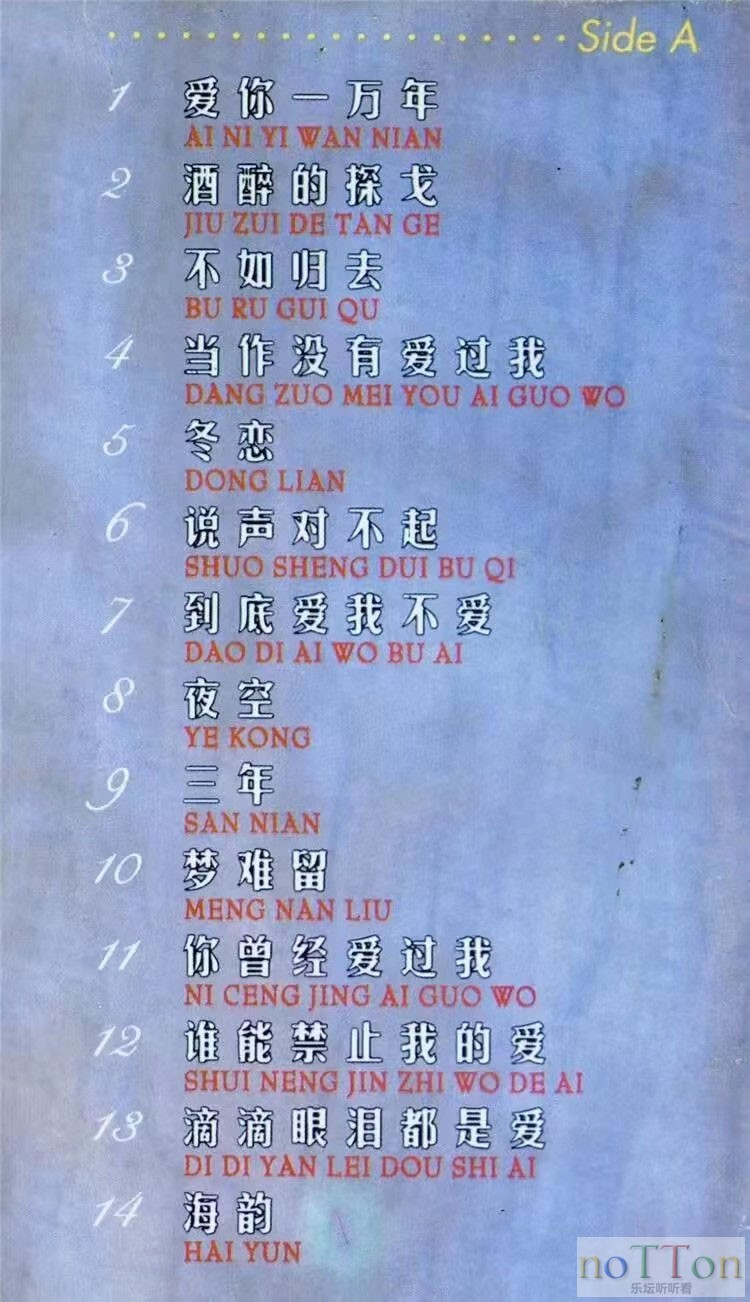 Side A
1 爱你一万年
AI NI YI WAN NIAN
2 酒醉的探戈
JIU ZUI DE TAN GE
3 不如归去
BU RU GUI QU
4 当作没有爱过我
DANG ZUO MEI YOU AI GUO WO
5 冬恋
DONG LIAN
6 说声对不起
SHUO SHENG DUI BU QI
7 到底爱我不爱
DAO DI AI WO BU AI
8 夜空
YE KONG
9 三年
SAN NIAN
10 梦难留
MENG NAN LIU
11 你曾经爱过我
NI CENG JING AI GUO WO
12 谁能禁止我的爱
SHUI NENG JIN ZHI WO DE AI
13 滴滴眼泪都是爱
DI DI YAN LEI DOU SHI AI
14 海韵
HAI YUN
noTTon
乐坛听听看